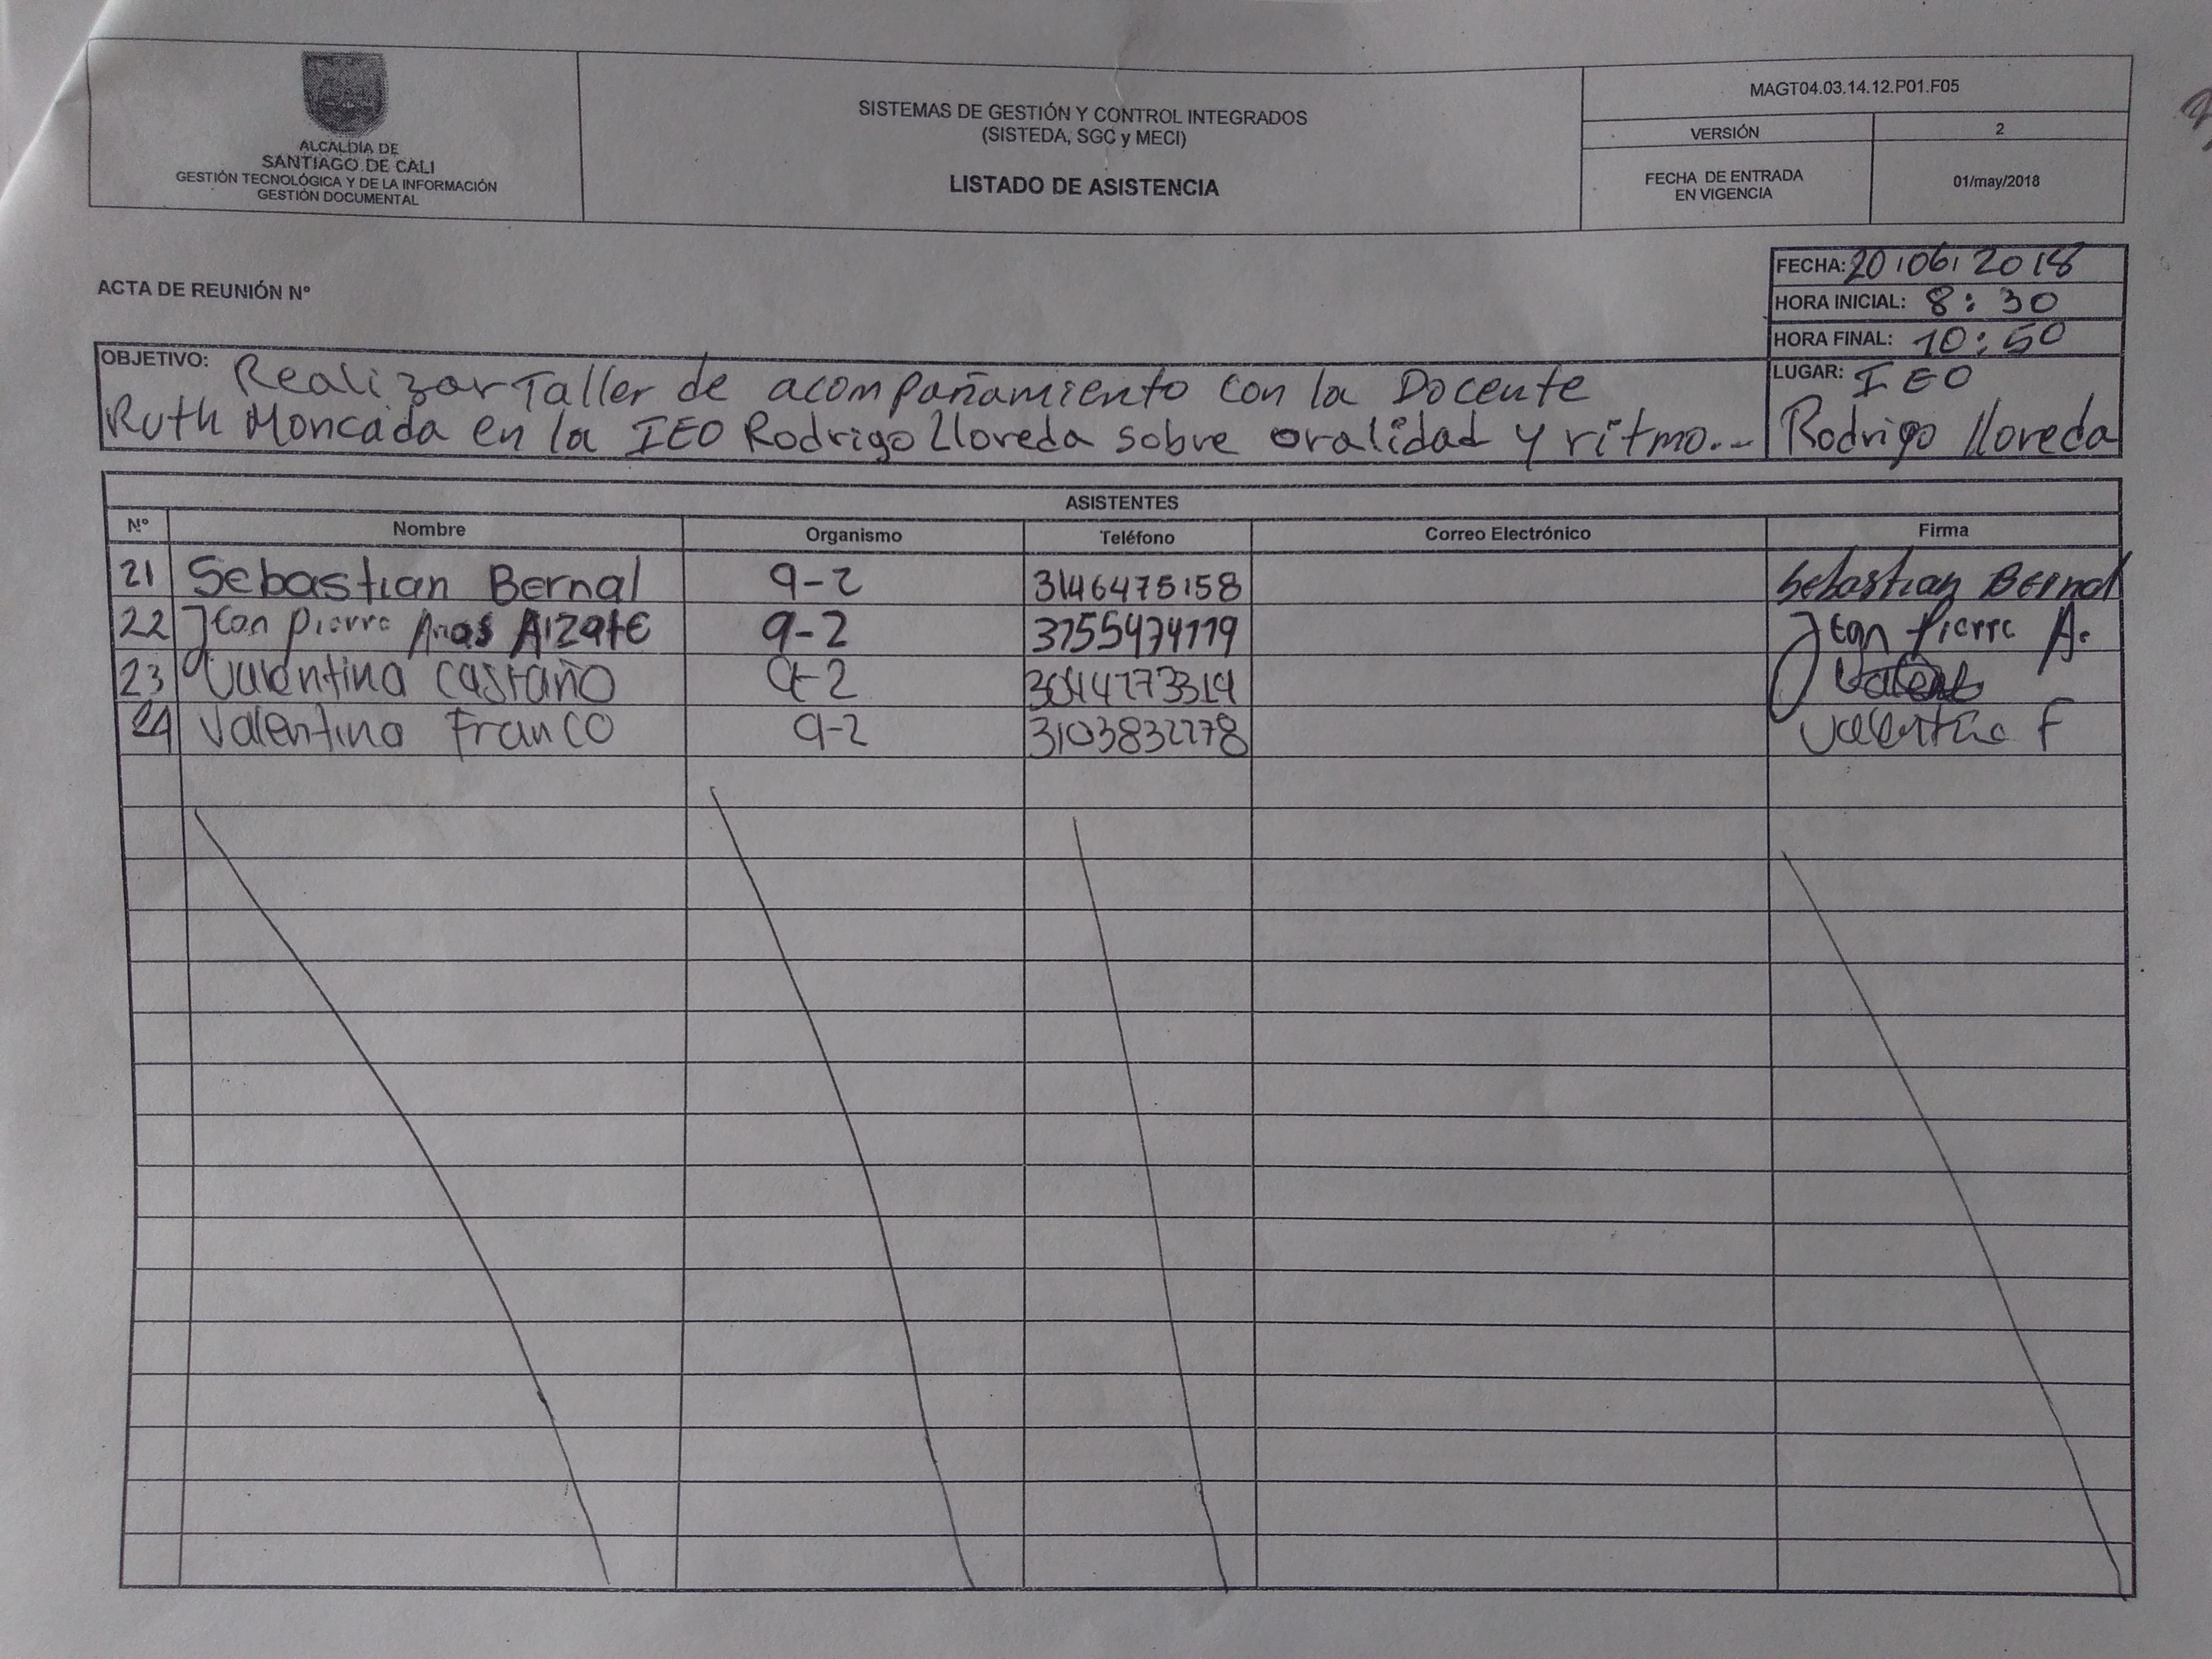 ALCALDÍA DE
SANTIAGO DE CALI
GESTIÓN TECNOLÓGICA Y DE LA INFORMACIÓN
GESTIÓN DOCUMENTAL
SISTEMAS DE GESTIÓN Y CONTROL INTEGRADOS
(SISTEDA, SGC y MECI)
LISTADO DE ASISTENCIA
MAGT04.03.14.12.P01.F05
VERSIÓN 2
FECHA DE ENTRADA
EN VIGENCIA 01/may/2018
ACTA DE REUNIÓN N°
FECHA: 20/06/2018
HORA INICIAL: 8:30
HORA FINAL: 10:50
LUGAR: IEO
Rodrigo Lloreda
OBJETIVO: Realizar Taller de acompañamiento con la Docente
Ruth Moncada en la IEO Rodrigo Lloreda sobre oralidad y ritmo...
ASISTENTES
N° Nombre Organismo Teléfono Correo Electrónico Firma
21 Sebastian Bernal 9-2 3146475158 Sebastian Bernal
22 Jean pierre Alzate 9-2 Jean Pierre A.
23 Valentina Castaño 9-2
24 Valentina Franco 9-2 3103832278 Valentina F